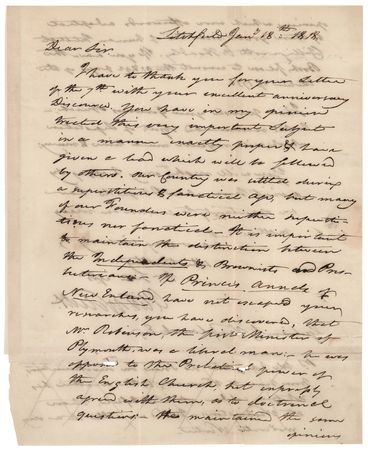 Litchfield Jany 18th 1818.
Dear Sir
I have to thank you for your Letter
of the 7th with your excellent anniversary
Discourse. You have in my opinion
treated this very important Subject
in a manner exactly proper & have
given a lead which will be followed
by others. Our Country was settled during
a superstitious & fanatical age, but many
of our Founders were neither supersti-
tious nor fanatical. It is important
to maintain the distinction between
the Independents & Brownists and Pres-
byterians. If Princes Annals of
New England have not escaped your
researches, you have discovered, that
Mr Robinson, the first Minister of
Plymouth, was a liberal man. he was
opposed to the Prelatical power of
the English Church, but expressly
agreed with them, as to doctrinal
questions he maintained the same
opinions